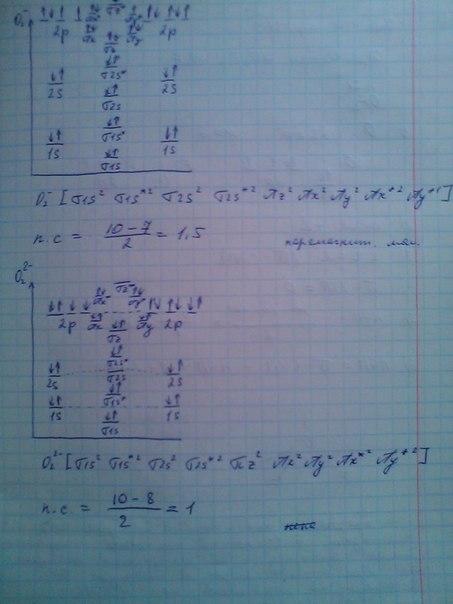 O₂⁻
2p 2p
2s σ2s* 2s
σ2s
1s σ1s* 1s
σ1s
O₂⁻ [σ1s² σ1s*² σ2s² σ2s*² πz² πx² πy² πx*² πy*¹]
п.с = (10-7)/2 = 1,5 парамагнит. мол.
O₂²⁻
2p πx πy 2p
2s σ2s* 2s
σ2s
1s σ1s* 1s
σ1s
O₂²⁻ [σ1s² σ1s*² σ2s² σ2s*² πz² πx² πy² πx*² πy*²]
п.с. = (10-8)/2 = 1